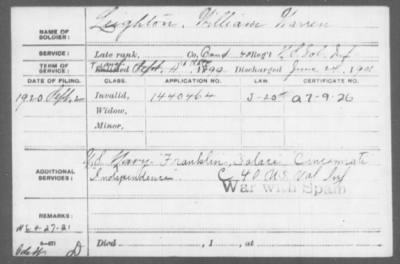 NAME OF SOLDIER: Leighton, William Warren
SERVICE: Late rank, Co. Band 40 Reg't U.S. Vol. Inf
TERM OF SERVICE: Enlisted Sept. 1899 Discharged June 24, 1901
DATE OF FILING. CLASS. APPLICATION NO. LAW. CERTIFICATE NO.
1920 Sept. Invalid, 1440464 J-20th A 7-9-26
Widow,
Minor,
ADDITIONAL SERVICES: U.S. Navy "Franklin, Solace, Cincinnati
Independence" C 40 U.S. Vol Inf
War with Spain
REMARKS:
Died , 1 , at